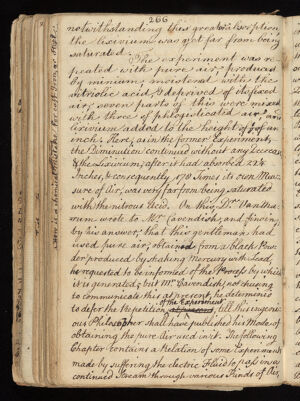 266
notwithstanding this great absorption
the lixivium was yet far from being
saturated.
The experiment was re
peated with pure air, produced
by minium, moistened with the
vitriolic acid, & deprived of its fixed
air; seven parts of this were mixed
with three of phlogisticated air, & li
xivium added to the height of ⅛ of an
inch. Here, as in the former Experiment,
the Diminution continued without any Decrease
& the Lixivium, after it had absorbed 22¼
Inches, & consequently, 178 Times its own Mea
sure of Air, was very far from being saturated
with the nitrous Acid. On this Dr. Van Ma
rum wrote to Mr. Cavendish, and finding
by his answer, that this gentleman had
used pure air, obtained from a black Pow
der produced by shaking Mercury with Lead,
he requested to be informed of the Process by which
it is generated; but Mr. Cavendish, not chusing
to communicate this at present, he determined
of the Experiment
to defer the Repetition till this ingeni
ous Philosopher shall have published his Mode of
obtaining the pure Air used in it. The following
Chapter contains a Relation of some Experiments
made by suffering the electric Fluid to pass in a
continued Stream through various Kinds of Air,